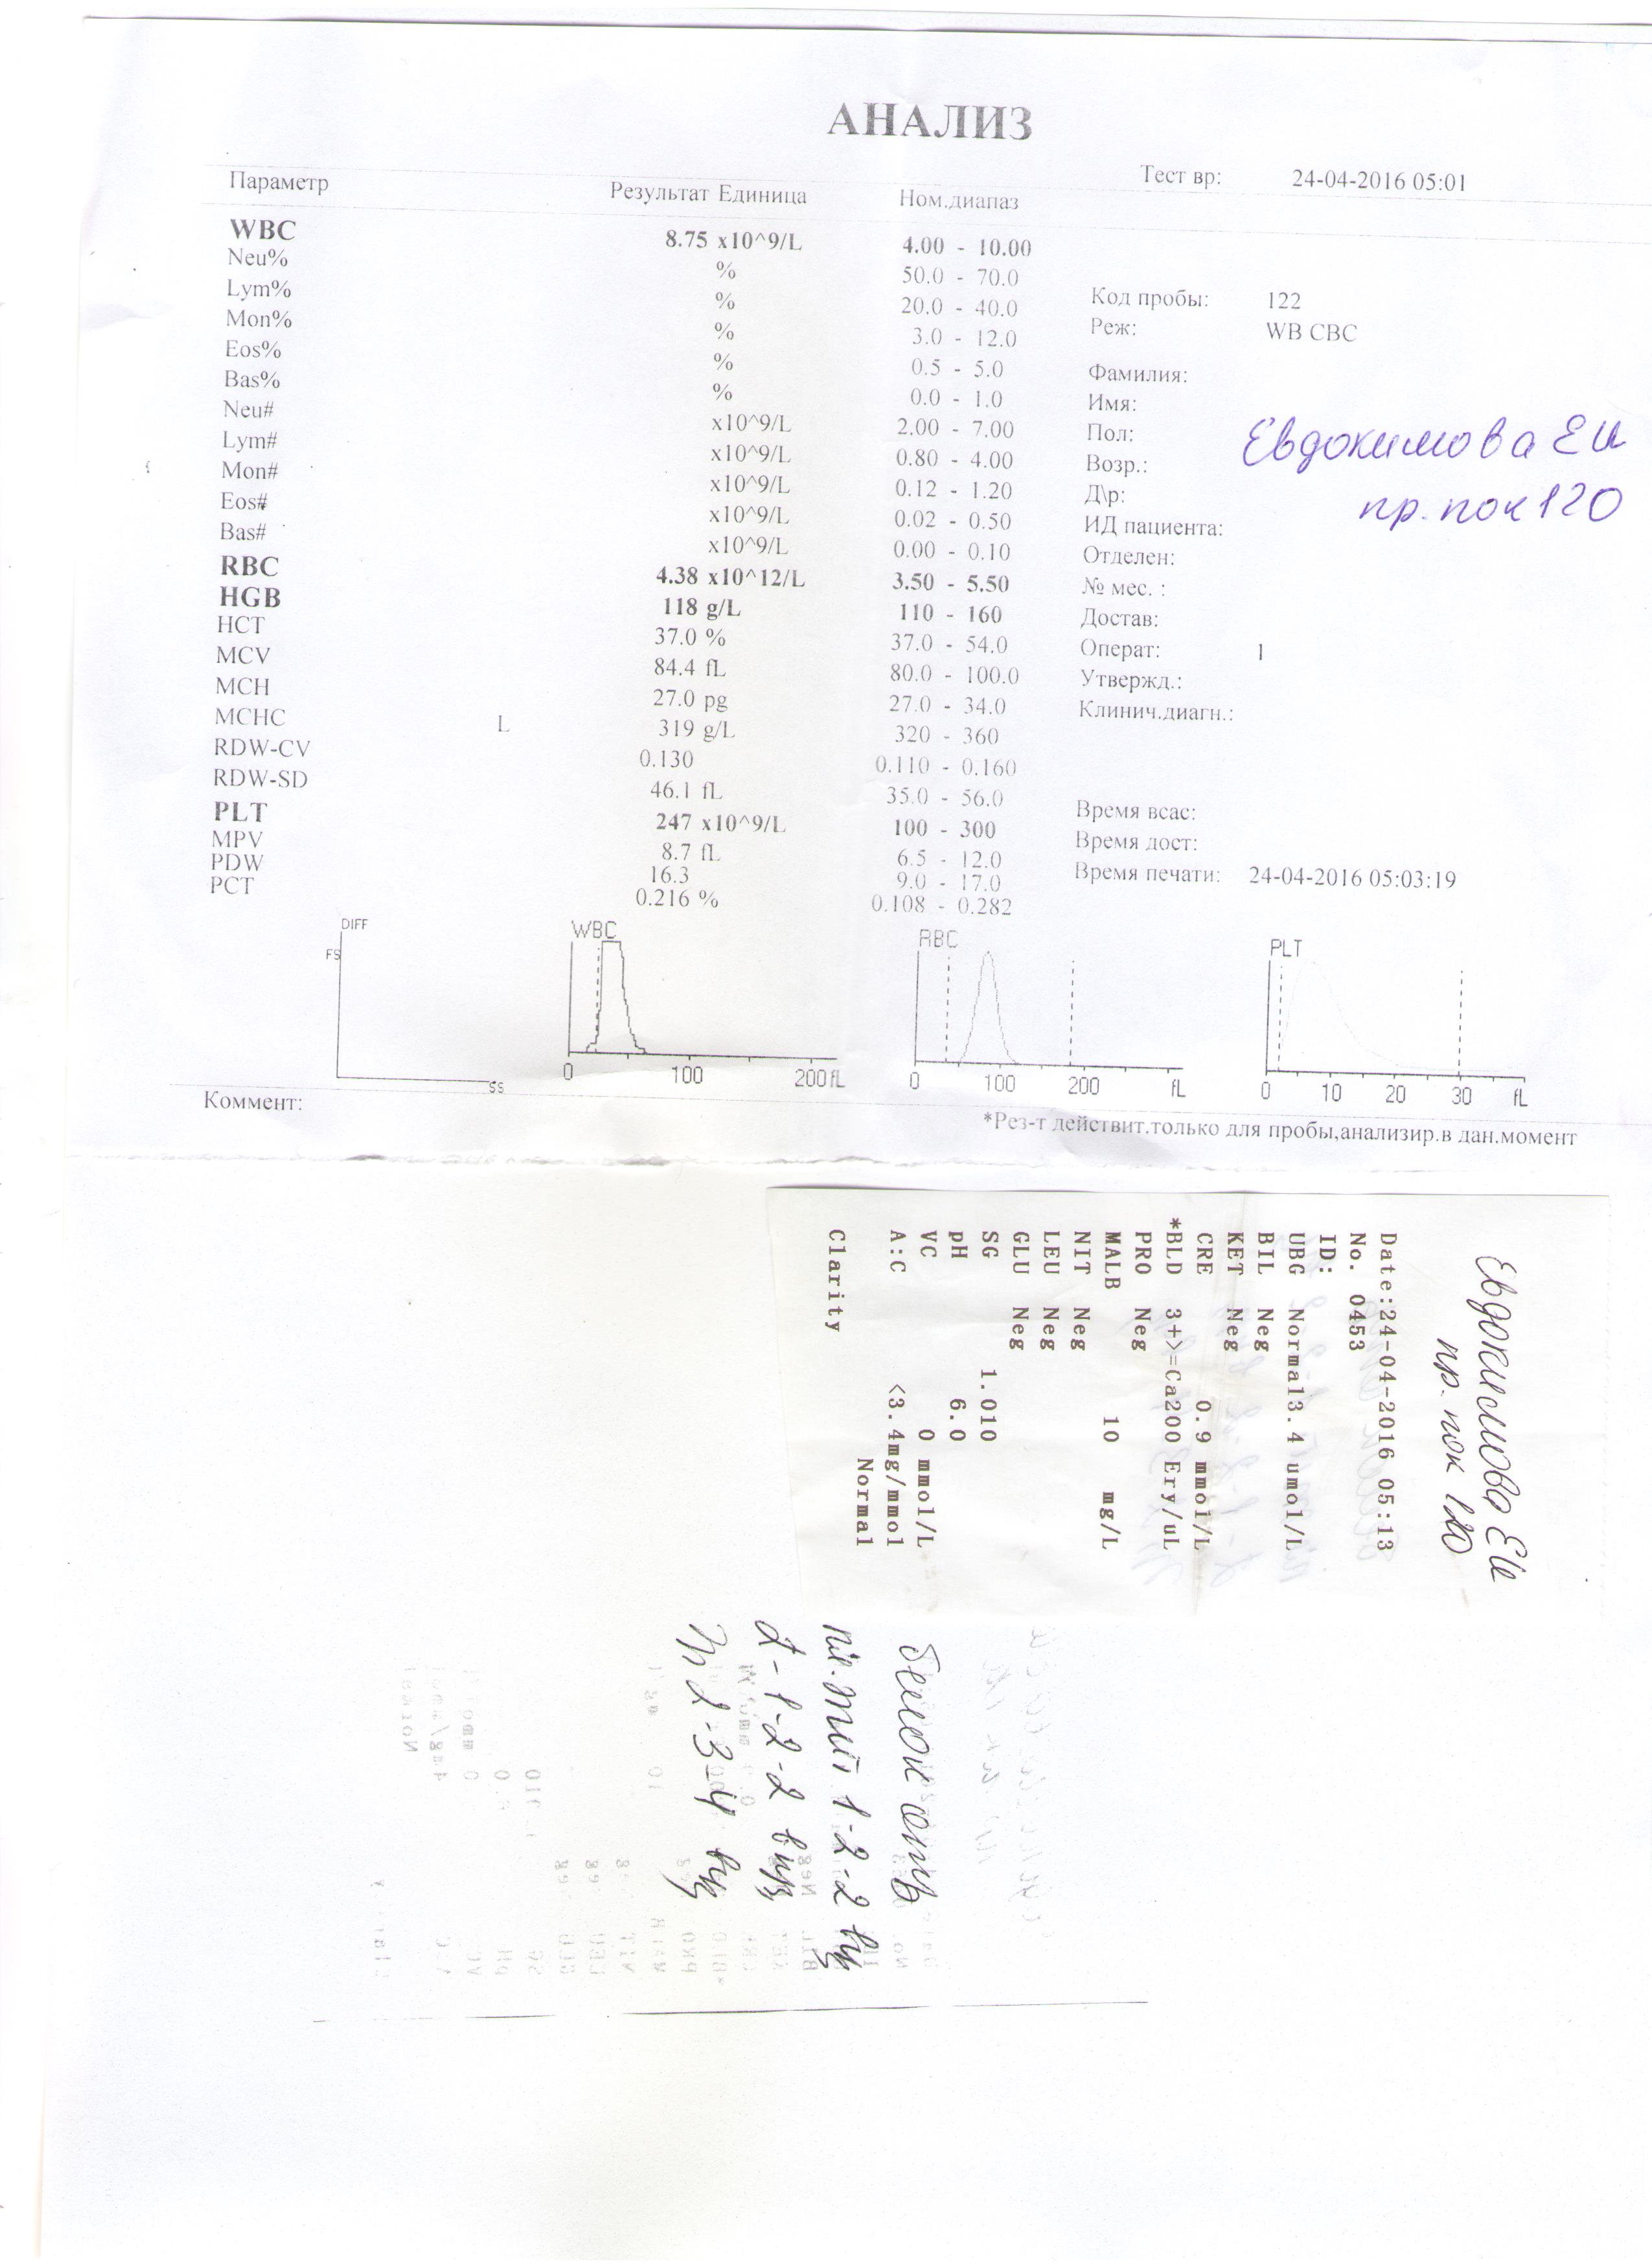 АНАЛИЗ
Тест вр: 24-04-2016 05:01
Параметр Результат Единица Ном.диапаз
WBC 8.75 x10^9/L 4.00 - 10.00
Neu% % 50.0 - 70.0
Lym% % 20.0 - 40.0
Mon% % 3.0 - 12.0
Eos% % 0.5 - 5.0
Bas% % 0.0 - 1.0
Neu# x10^9/L 2.00 - 7.00
Lym# x10^9/L 0.80 - 4.00
Mon# x10^9/L 0.12 - 1.20
Eos# x10^9/L 0.02 - 0.50
Bas# x10^9/L 0.00 - 0.10
RBC 4.38 x10^12/L 3.50 - 5.50
HGB 118 g/L 110 - 160
HCT 37.0 % 37.0 - 54.0
MCV 84.4 fL 80.0 - 100.0
MCH 27.0 pg 27.0 - 34.0
MCHC L 319 g/L 320 - 360
RDW-CV 0.130 0.110 - 0.160
RDW-SD 46.1 fL 35.0 - 56.0
PLT 247 x10^9/L 100 - 300
MPV 8.7 fL 6.5 - 12.0
PDW 16.3 9.0 - 17.0
PCT 0.216 % 0.108 - 0.282
Код пробы: 122
Реж: WB CBC
Фамилия:
Имя:
Пол:
Возр.:
Д\р:
ИД пациента:
Отделен:
№ мес. :
Достав:
Операт: 1
Утвержд.:
Клинич.диагн.:
Евдокимова ЕИ
пр. пок 120
Время всас:
Время дост:
Время печати: 24-04-2016 05:03:19
DIFF
FS
SS
WBC
0 100 200 fL
RBC
0 100 200 fL
PLT
0 10 20 30 fL
Коммент:
*Рез-т действит.только для пробы,анализир.в дан.момент
Евдокимова ЕИ
пр. пок 120
Date:24-04-2016 05:13
No. 0453
ID:
UBG Normal3.4 umol/L
BIL Neg
KET Neg
CRE 0.9 mmol/L
*BLD 3+>=Ca200 Ery/uL
PRO Neg
MALB 10 mg/L
NIT Neg
LEU Neg
GLU Neg
SG 1.010
pH 6.0
VC 0 mmol/L
A:C <3.4mg/mmol
Normal
Clarity
белок отр
1-2-2
1-2-2
2-3-4